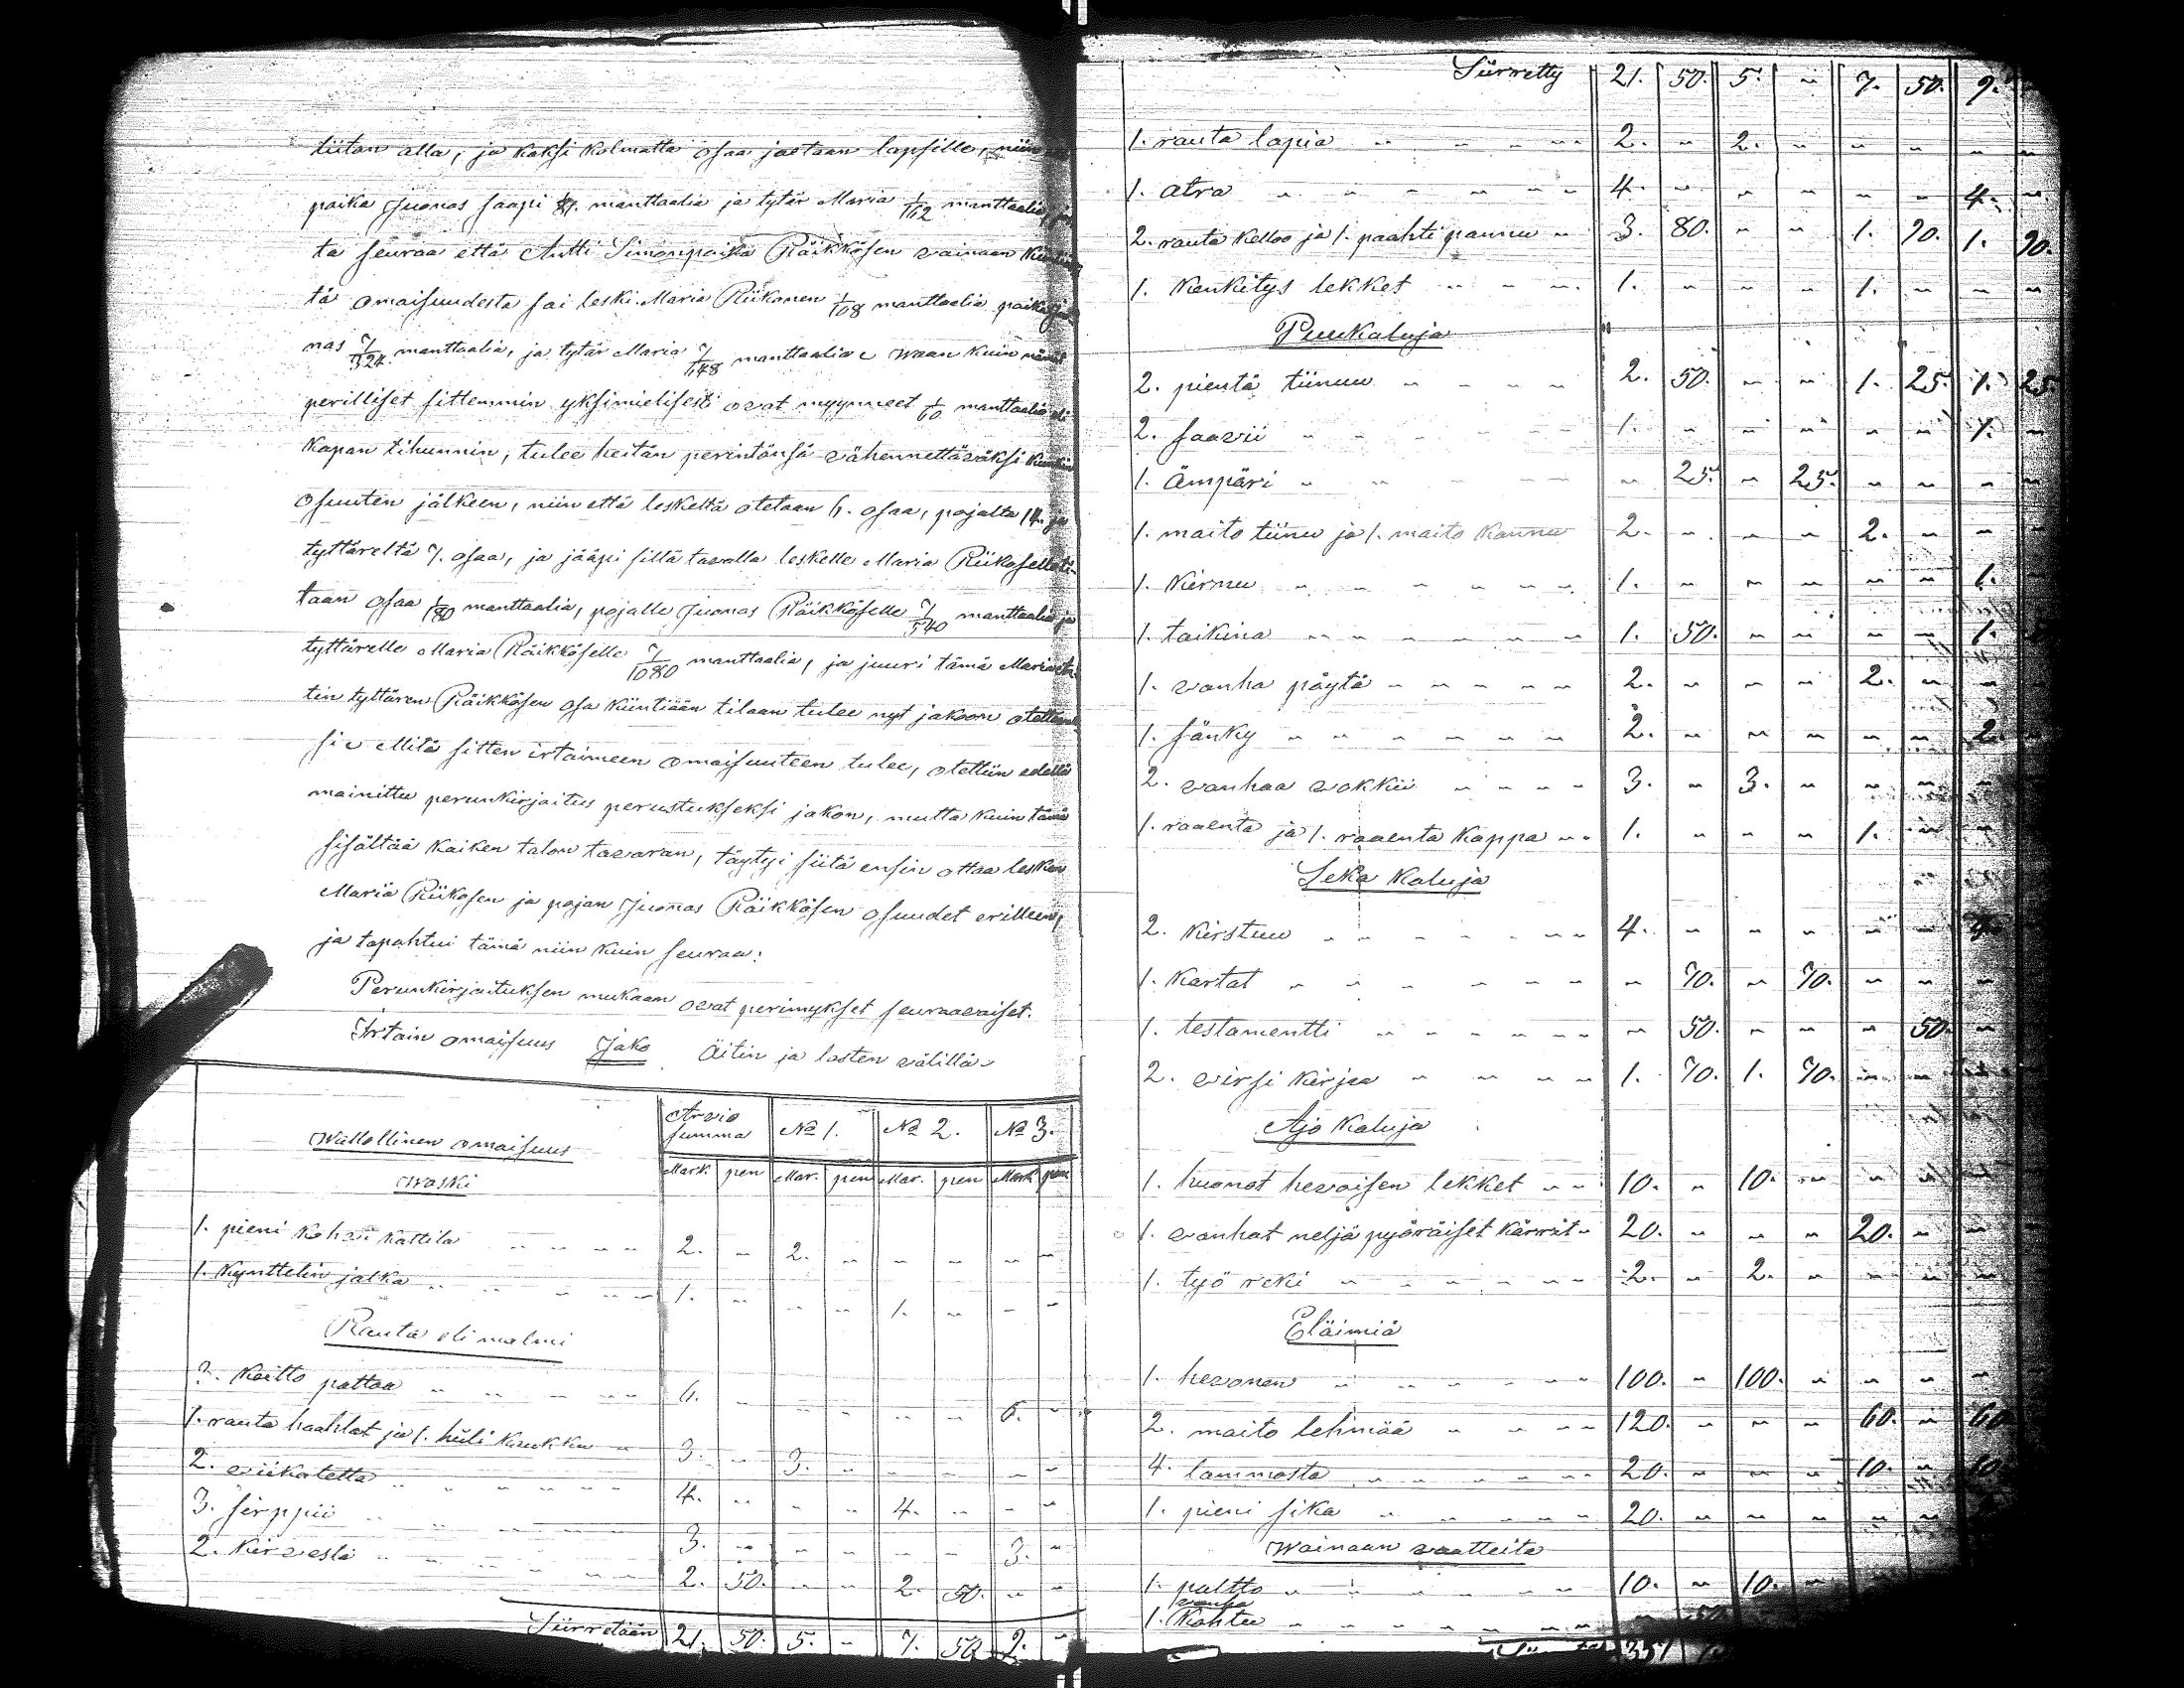 tiitan alla, ja kaksi kolmatta osaa jaetaan lapsille, niin
poika Juonas saapi manttaalia ja tytär Maria 1/162 manttaalia,
ta seuraa että Antti Simonpoika Räikkösen vainaan
tä omaisuudesta sai leski Maria Riikonen 1/108 manttaalia poika
nas 7/324 manttaalia, ja tytär Maria 7/648 manttaalia waan kuin nämät
perilliset sittemmin yksimielisesti ovat myynneet 1/60 manttaalia eli
kapan tihunnin, tulee heitän perintönsä vähennettäväksi kunkin
osuuten jälkeen, niin että leskeltä otetaan 6. osaa, pojalta 14. ja
tyttäreltä 7. osaa, ja jääpi sillä tavalla leskelle Maria Riikoselle ti-
taan osaa 1/180 manttaalia, pojalle Juonas Räikköselle 7/540 manttaalia ja
tyttärelle Maria Räikköselle 7/1080 manttaalia, ja juuri tämä Maria
tin tyttären Räikkösen osa kiintiään tilaan tulee nyt jakoon
si Mitä sitten irtaimeen omaisuuteen tulee, otettiin edellä
mainittu perunkirjoitus perustukseksi jakon, mutta kuin tämä
sisältää kaiken talon tavaran, täytyi siitä ensin ottaa lesken
Maria Riikosen ja pojan Juonas Räikkösen osuudet erilleen,
ja tapahtui tämä niin kuin seuraa:
Perunkirjoituksen mukaan ovat perimykset seuraavaiset.
Irtain omaisuus Jako Äitin ja lasten välillä
Wallollinen omaisuus Arvio summa No 1. No 2. No 3.
Waski Mark pen Mar. pen Mar. pen Mark pen
1. pieni kahvi kattila 2. " 2. " " " " "
1. kynttelin jalka 1. " " " 1. " " "
Rauta eli malmi
3. keitto pattaa 6. " " " " " 6. "
1. rauta haahlat ja 1. hiili koukku 3. " 3. " " " " "
2. viikatetta 4. " " " 4. " " "
3. sirppii 3. " " " " " 3. "
2. kirvestä 2. 50. " " 2. 50. " "
Siirretään 21. 50. 5. " 7. 50. 9. "
Siirretty 21. 50. 5. " 7. 50. 9.
1. rauta lapia 2. " 2. " " " " "
1. atra 4. " " " " " 4. "
2. rauta kelloo ja 1. paahti pannu 3. 80. " " 1. 90. 1. 90.
1. kenkitys lekket 1. " " " 1. " " "
Puukaluja
2. pientä tiinuu 2. 50. " " 1. 25. 1. 25
2. saavii 1. " " " " " 1. "
1. ämpäri " 25. " 25. " " " "
1. maito tiinu ja 1. maito kannu 2. " " " 2. " " "
1. kirnu 1. " " " " " 1.
1. taikina 1. 50. " " " " 1.
1. vanha pöytä 2. " " " 2. " "
1. sänky 2. " " " " " 2.
2. vanhaa vokkii 3. " 3. " " " "
1. raaenta ja 1. raaenta kappa 1. " " " 1. " "
Seka kaluja
2. kirstuu 4. " " " " " 4.
1. kartat " 70. " 70. " " "
1. testamentti " 50. " " " 50. "
2. virsi kirjaa 1. 70. 1. 70. " "
Ajo kaluja
1. huonot hevoisen lekket 10. " 10. " " "
1. vanhat neljä pyöräiset kärrit 20. " " " 20. " "
1. työ reki 2. " 2. " " " "
Eläimiä
1. hevonen 100. " 100. " " " "
2. maito lehmää 120. " " " 60. " 60
4. lammasta 20. " " " 10. " 10
1. pieni sika 20. " " " " "
Wainaan vaatteita
1. paltto 10. " 10. "
1. vanha kahtu " 50.
351